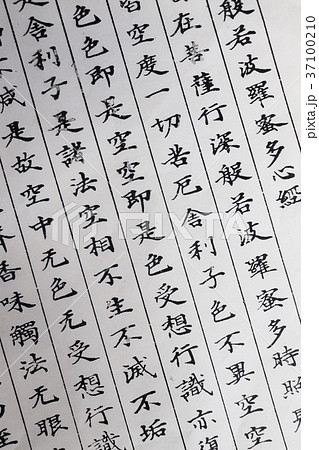 般若波羅蜜多心經
在菩薩行深般若波羅蜜多時照見
皆空度一切苦厄舍利子色不異空空
色色即是空空即是色受想行識亦復
是舍利子是諸法空相不生不滅不垢
減是故空中无色无受想行識
香味觸法无眼
至
PIXTA
pixta.jp - 37100210